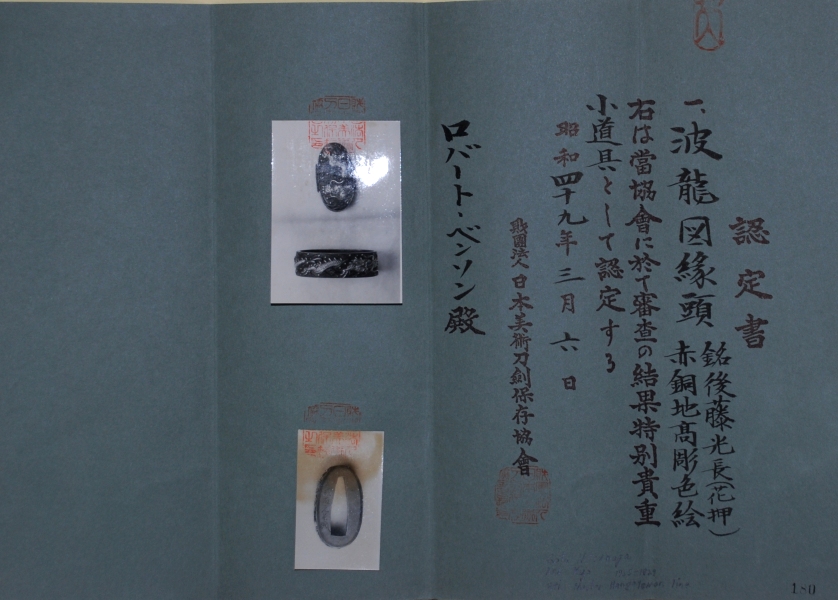 認定書
一、波龍図縁頭
銘後藤光長(花押)
赤銅地高彫色絵
右は當協會に於て審査の結果特別貴重
小道具として認定する
昭和四十九年三月六日
財團法人日本美術刀剣保存協會
ロバート・ベンソン殿
180